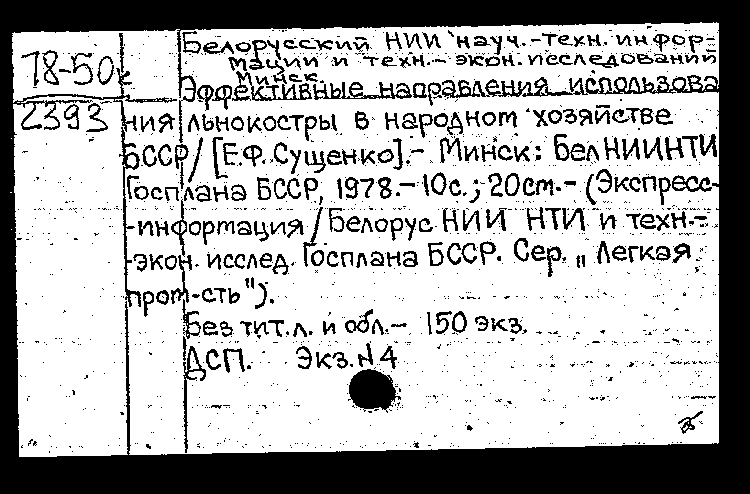 Белорусский НИИ науч.-техн. инфор-
мации и техн.-экон. исследований
Минск
78-50к
Эффективные направления использова
2393
ния льнокостры в народном хозяйстве
БССР/[Е.Ф. Сущенко].- Минск: БелНИИНТИ
Госплана БССР, 1978.-10с.; 20см.- (Экспресс-
-информация/Белорус НИИ НТИ и техн.-
-экон. исслед. Госплана БССР. Сер. „Легкая
пром-сть").
Без тит.л. и обл.- 150 экз.
ДСП. Экз.N4